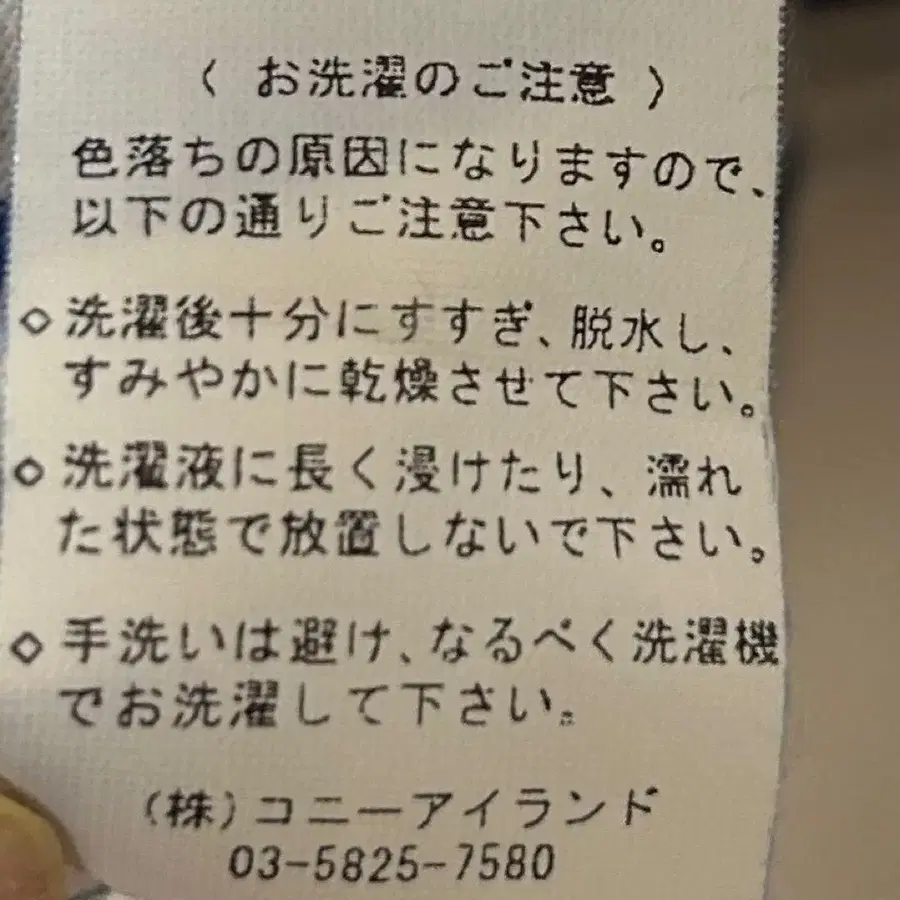 〈 お洗濯のご注意 〉
色落ちの原因になりますので、
以下の通りご注意下さい。
◇洗濯後十分にすすぎ、脱水し、
すみやかに乾燥させて下さい。
◇洗濯液に長く浸けたり、濡れ
た状態で放置しないで下さい。
◇手洗いは避け、なるべく洗濯機
でお洗濯して下さい。
(株)コニーアイランド
03-5825-7580